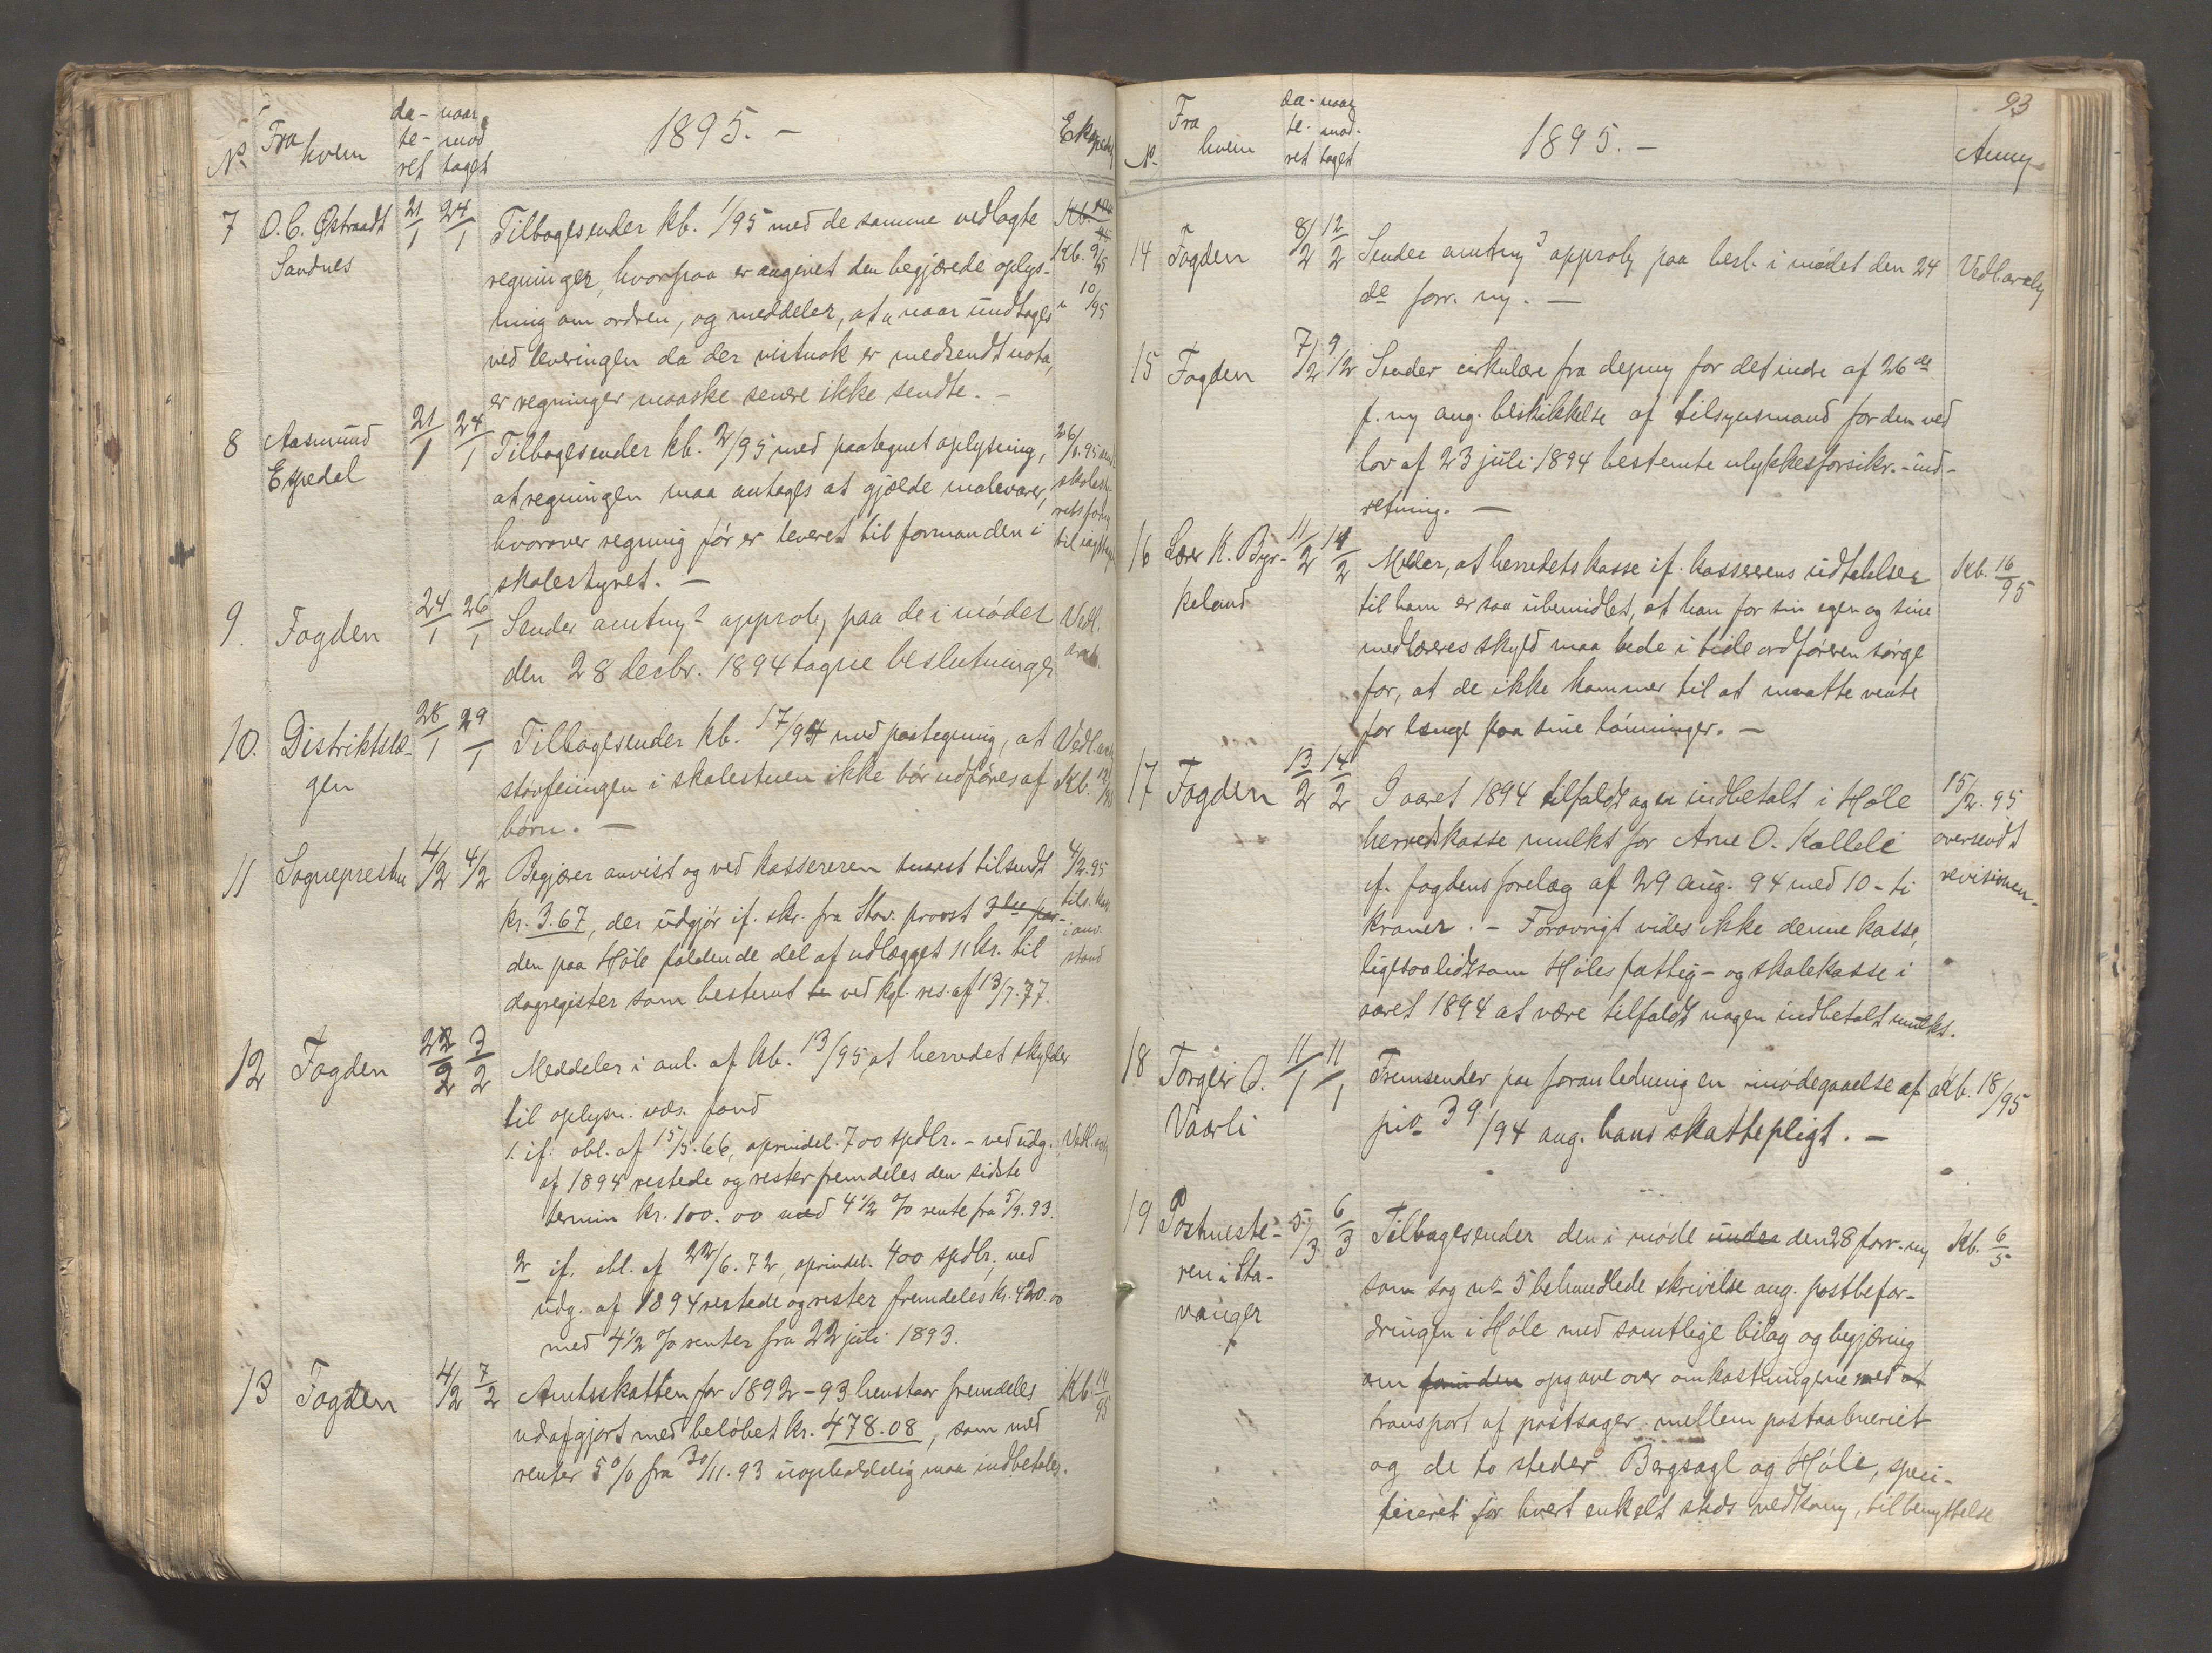 No Fra hvem da-te-ret naar mod taget 1895. - Exped.
7 O. C. Østraadt Sandnes 21/1 24/1 Tilbagesender kb. 1/95 med de samme vedlagte
regninger, hvorpaa er angivet den begjærede oplys- Kb. 9/95
ning om ordren, og meddeler, at naar undtages " 10/95
ved leveringen da der vistnok er medsendt nota,
er regninger maaske senere ikke sendte. -
8 Aasmund Espedal 21/1 24/1 Tilbagesender kb. 2/95 med paategnet oplysning, 26/1.95
at regningen maa antages at gjælde malevarer,
hvorover regning før er leveret til formanden i
skolestyret. -
9. Fogden 24/1 26/1 Sender amtny? approb, paa de i mødet Vedl.
den 28 decbr. 1894 tagne beslutninger
10. Distriktslæ-gen 28/1 29/1 Tilbagesender kb. 17/94 med paategning, at
støvfeiingen i skolestuen ikke bør udføres af Kb. 12/95
børn. -
11 Sognepresten 4/2 4/2 Begjærer anvist og ved kassereren snarest tilsendt 4/2.95
kr. 3.67, der udgjør if. skr. fra Stav. provst tils. kas.
den paa Høle faldende del af udlægget 11 kr. til i anv.
dagregister som bestemt ved kgl. res. af 13/7.77. stand
12 Fogden 22/2 3/2 Meddeler i anl. af kb. 13/95, at herredet skylder
til oplysn. væs. fond
1. if. obl. af 15/5.66, oprindel. 700 spdlr. - ved udg.
af 1894 restede og rester fremdeles den sidste
termin kr. 100.00 med 4 1/2 % rente fra 5/9.93.
2 if. obl. af 22/6.72, oprindel. 400 spdlr, ved
udg. af 1894 restede og rester fremdeles kr. 420.00
med 4 1/2 % renter fra 22 juli 1893.
13 Fogden 4/2 7/2 Amtsskatten for 1892-93 henstaar fremdeles Kb. 14/95
udafgjort med beløbet kr. 478.08, som med
renter 5 % fra 30/11.93 uopholdelig maa indbetales.
93
No Fra hvem da-te-ret naar mod-taget 1895. - Anm
14 Fogden 8/2 12/2 Sender amtny approb, paa besl. i mødet den 24
de forr. m. -
15 Fogden 7/2 9/2 Sender cirkulære fra depmt for det indre af 26de
f. m ang. beskikkelse af tilsynsmand for den ved
lov af 23 juli 1894 bestemte ulykkesforsikr. - ind-
retning. -
16 Lærer K. Byr-keland 11/2 14/2 Melder, at herredets kasse if. kassererens udtalelser Kb. 16/95
til ham er saa ubemidlet, at han for sin egen og sine
medlæreres skyld maa bede i tide ordføreren sørge
for, at de ikke kommer til at maatte vente
for længe paa sine lønninger. -
17 Fogden 13/2 14/2 I aaret 1894 tilfaldt og er indbetalt i Høle 15/2.95
herredskasse mulkt for Arne O. Kalleli oversendt
if. fogdens forelæg af 29 aug. 94 med 10 - ti revisionen.
kroner. - Forøvrigt vides ikke denne kasse,
ligesaalidt som Høles fattig- og skolekasse i
aaret 1894 at være tilfaldt nogen indbetalt mulkt.
18 Torgeir O. Vaarli 11/1 11/1 Fremsender paa foranledning en imødegaaelse af Kb. 18/95
39/94 ang. hans skattepligt. -
19 Postmeste-ren i Sta-vanger 5/3 6/3 Tilbagesender den i møde under den 28 forr. m Kb. 6/5
som sag no 5 behandlede skrivelse ang. postbefor-
dringen i Høle med samtlige bilag og begjæring
om opgave over omkostningene med
transport af postsager mellem postaabneriet
og de to steder Bergsagl og Høle, speci-
ficeret for hvert enkelt steds vedkom, til benyttelse